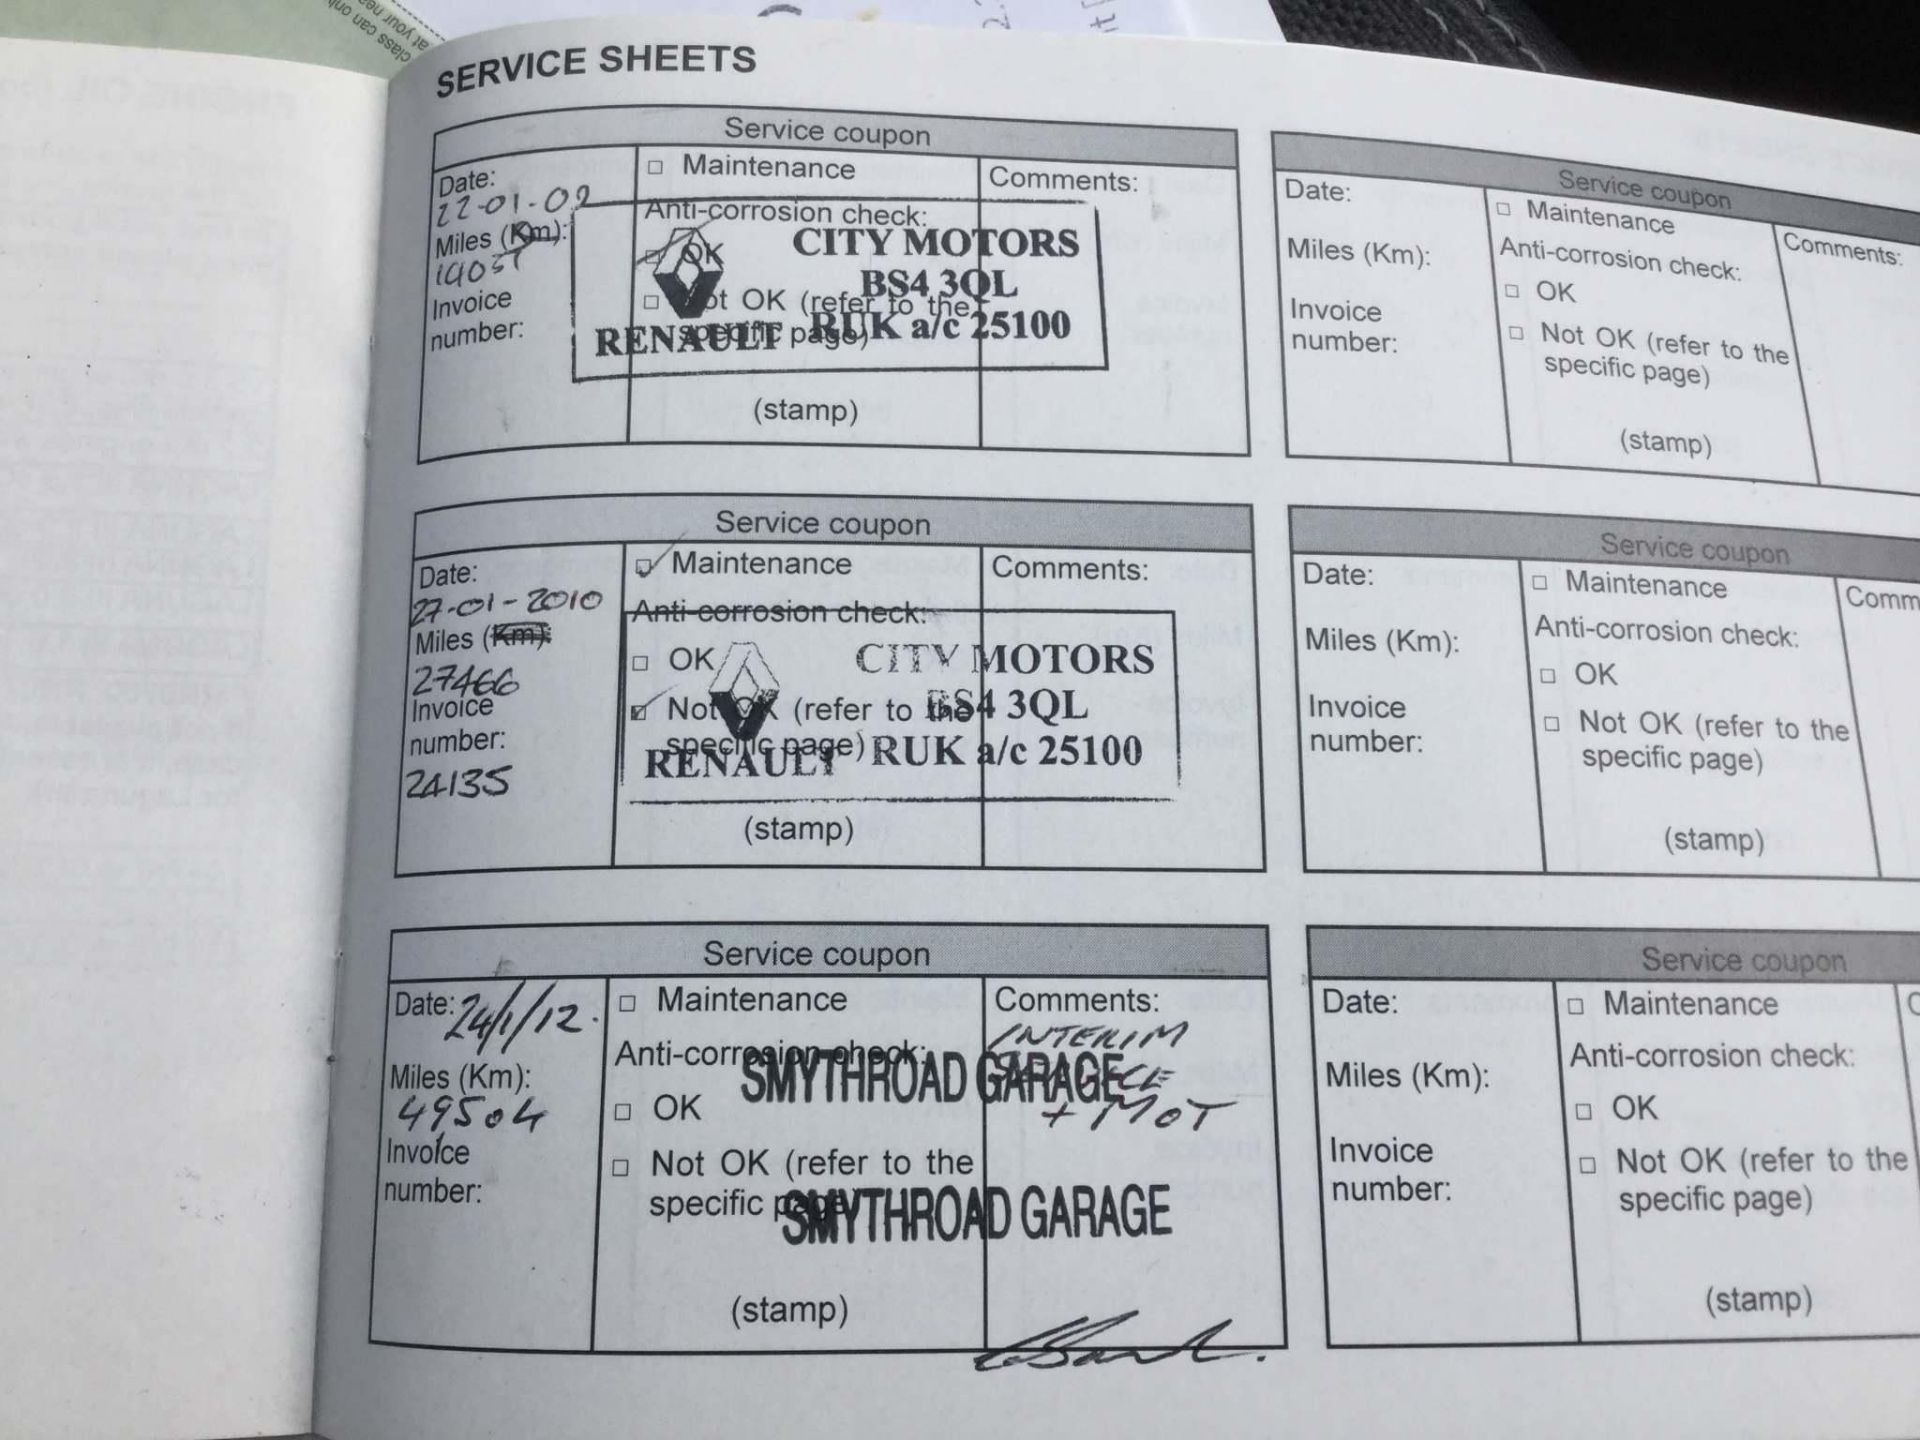 at your near
class can only
SERVICE SHEETS
Service coupon
Date:
22-01-09
Miles (Km):
Invoice
number:
□ Maintenance
Anti-corrosion check:
□ OK
□ Not OK (refer to the
specific page)
(stamp)
Comments:
CITY MOTORS
BS4 3QL
RENAULT RUK a/c 25100
Service coupon
Date:
Miles (Km):
Invoice
number:
□ Maintenance
Anti-corrosion check:
□ OK
□ Not OK (refer to the
specific page)
(stamp)
Comments:
Service coupon
Date:
27-01-2010
Miles (Km):
27466
Invoice
number:
24135
☑ Maintenance
Anti-corrosion check:
□ OK
☑ Not OK (refer to the
specific page)
(stamp)
Comments:
CITY MOTORS
BS4 3QL
RENAULT RUK a/c 25100
Service coupon
Date:
Miles (Km):
Invoice
number:
□ Maintenance
Anti-corrosion check:
□ OK
□ Not OK (refer to the
specific page)
(stamp)
Comm
Service coupon
Date: 24/1/12.
Miles (Km):
49504
Invoice
number:
□ Maintenance
Anti-corrosion check:
□ OK
□ Not OK (refer to the
specific page)
(stamp)
Comments:
INTERIM
SERVICE
+ MOT
SMYTHROAD GARAGE
SMYTHROAD GARAGE
Service coupon
Date:
Miles (Km):
Invoice
number:
□ Maintenance
Anti-corrosion check:
□ OK
□ Not OK (refer to the
specific page)
(stamp)
C